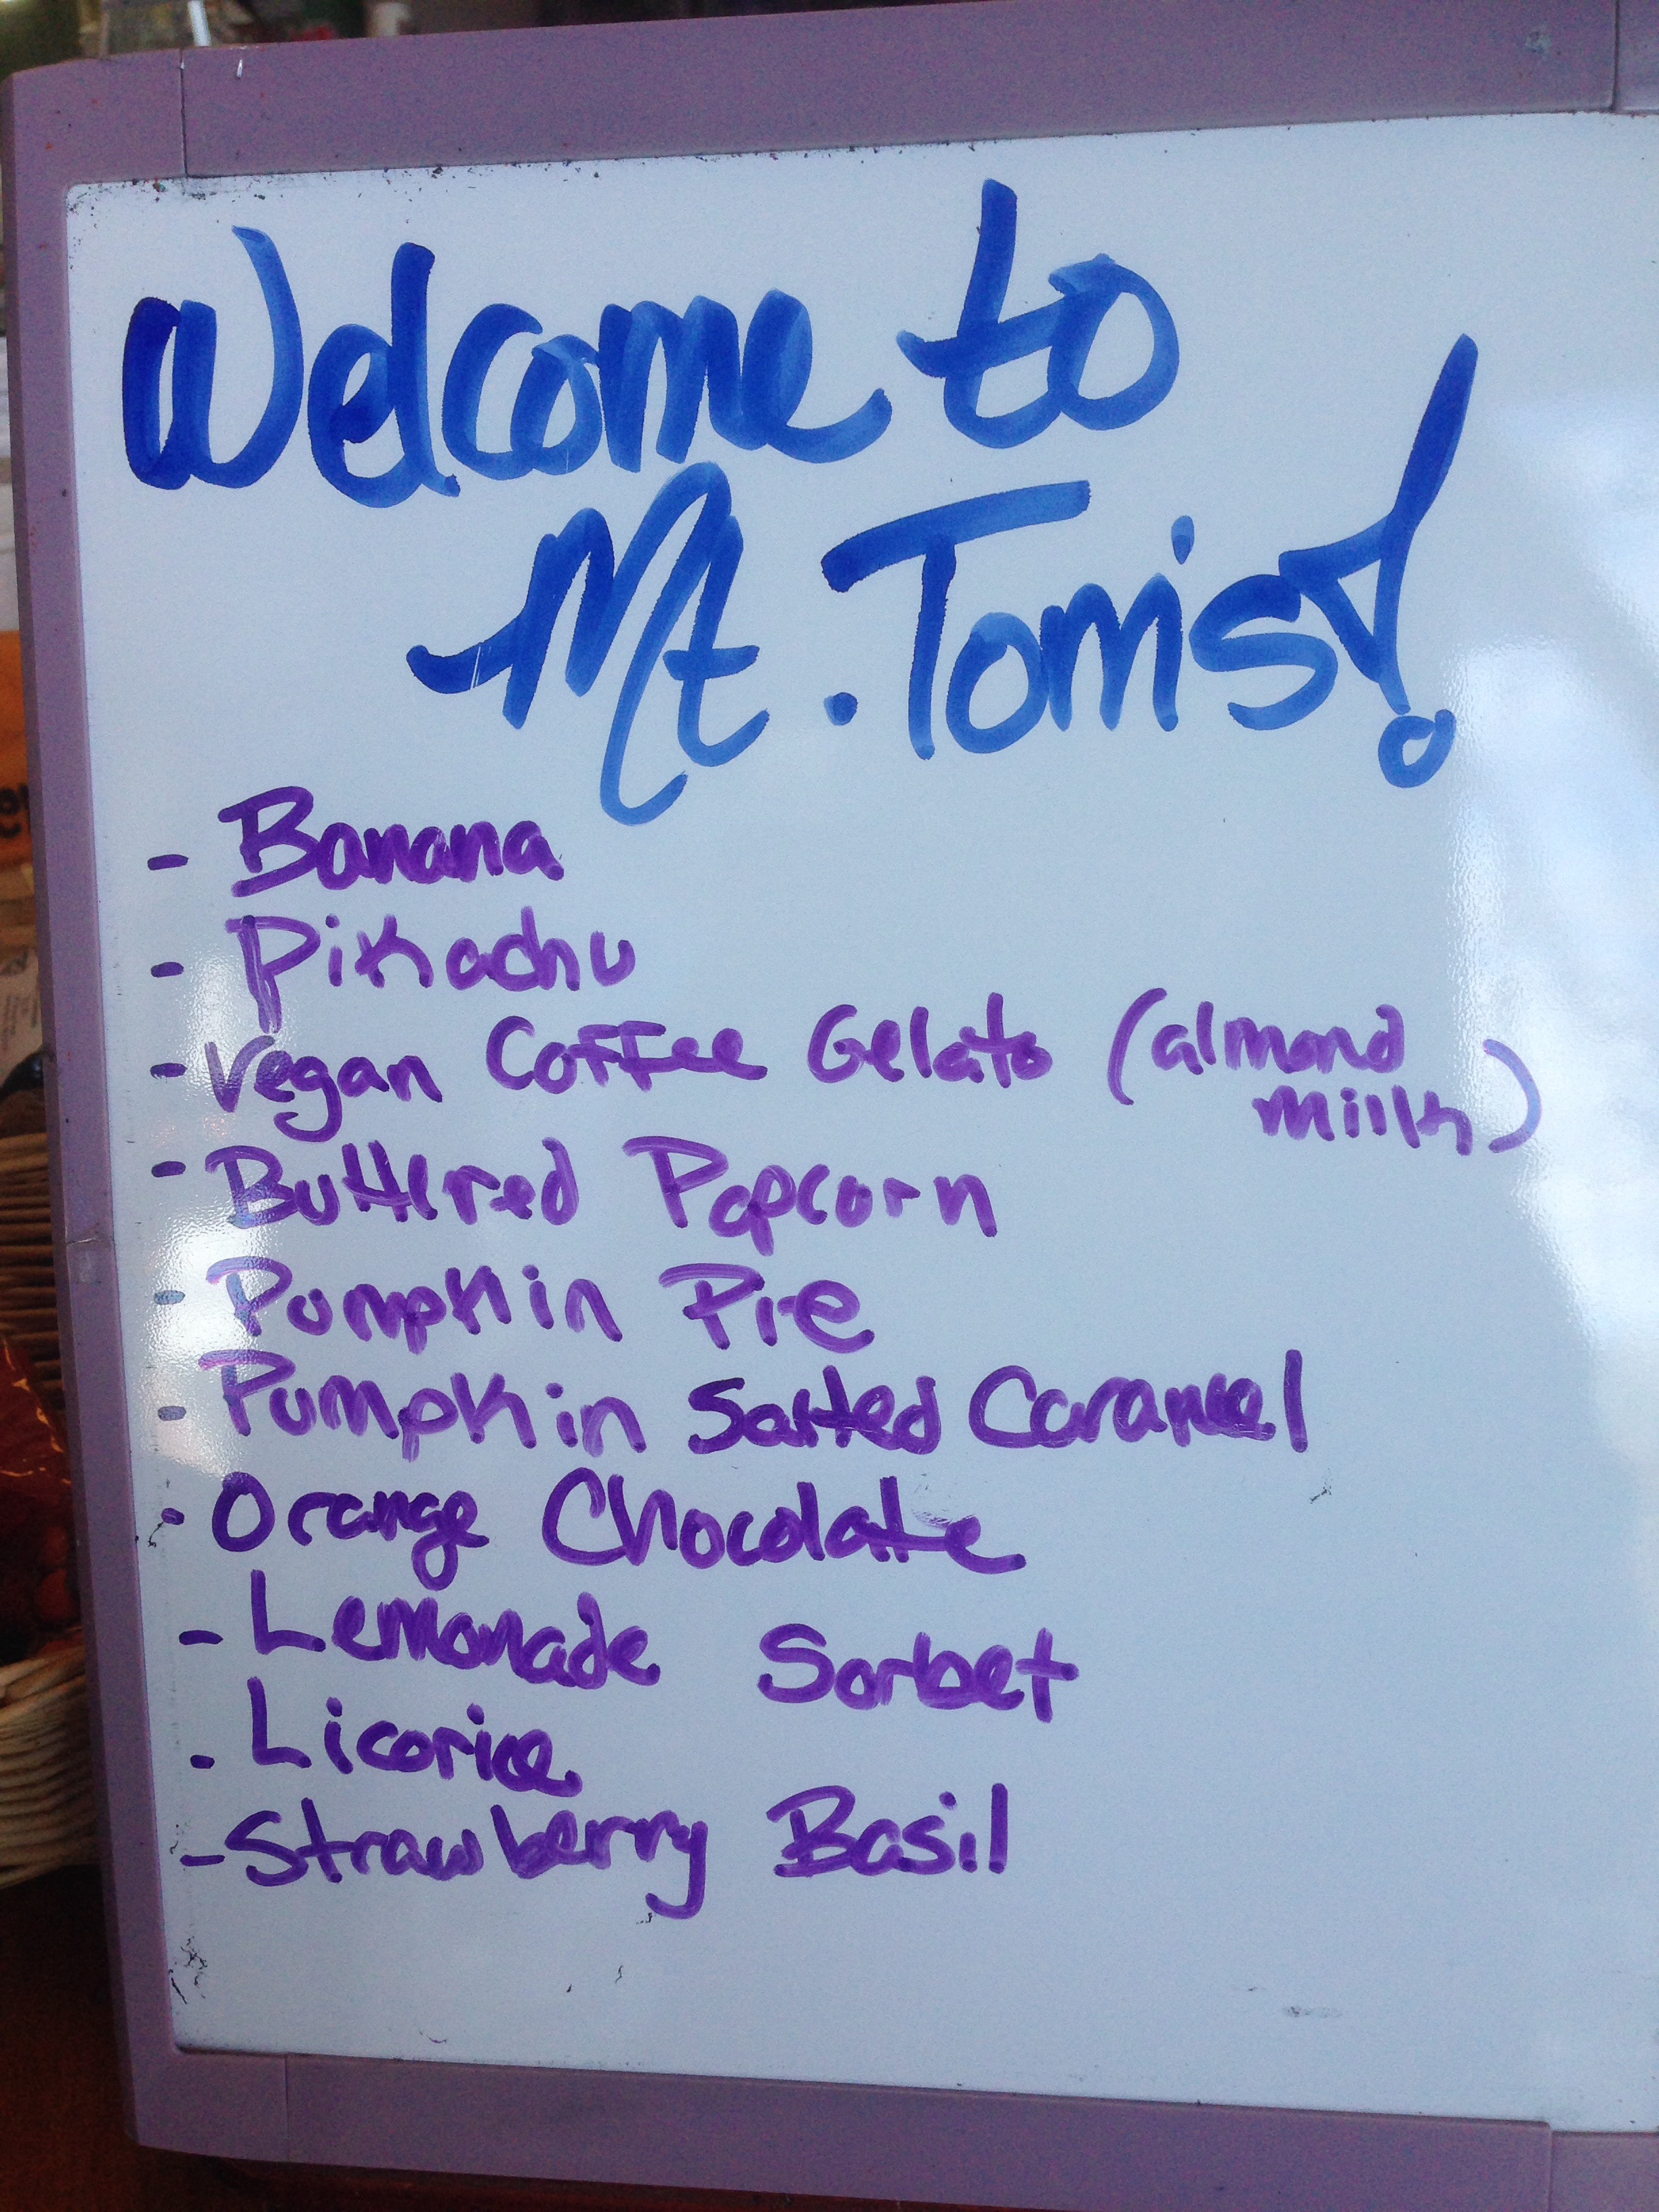 Welcome to
Mt. Tom's!
- Banana
- Pikachu
- Vegan Coffee Gelato (almond
milk)
- Buttered Popcorn
- Pumpkin Pie
- Pumpkin Salted Caramel
- Orange Chocolate
- Lemonade Sorbet
- Licorice
- Strawberry Basil